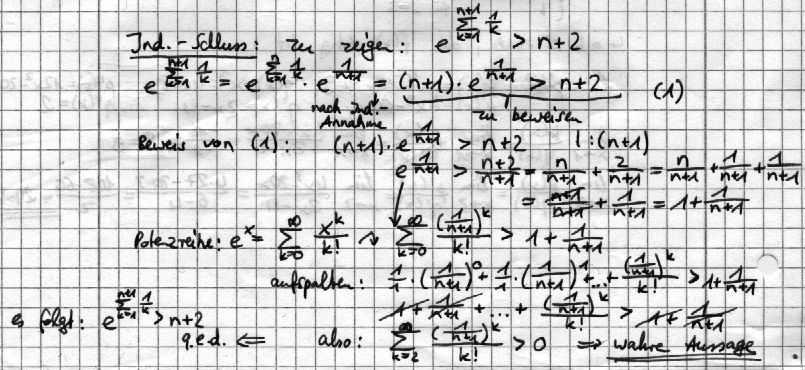 Ind.-Schluss: zu zeigen: e^{\sum_{k=1}^{n+1} \frac{1}{k}} > n+2
e^{\sum_{k=1}^{n+1} \frac{1}{k}} = e^{\sum_{k=1}^{n} \frac{1}{k}} · e^{\frac{1}{n+1}} = (n+1) · e^{\frac{1}{n+1}} > n+2 (1)
nach Ind.-Annahme zu beweisen
Beweis von (1): (n+1) · e^{\frac{1}{n+1}} > n+2 | :(n+1)
e^{\frac{1}{n+1}} > \frac{n+2}{n+1} = \frac{n}{n+1} + \frac{2}{n+1} = \frac{n}{n+1} + \frac{1}{n+1} + \frac{1}{n+1}
= \frac{n+1}{n+1} + \frac{1}{n+1} = 1 + \frac{1}{n+1}
Potenzreihe: e^x = \sum_{k=0}^{∞} \frac{x^k}{k!} ↷ \sum_{k=0}^{∞} \frac{(\frac{1}{n+1})^k}{k!} > 1 + \frac{1}{n+1}
aufspalten: \frac{1}{1} · (\frac{1}{n+1})^0 + \frac{1}{1} · (\frac{1}{n+1})^1 + ... + \frac{(\frac{1}{n+1})^k}{k!} > 1 + \frac{1}{n+1}
1 + \frac{1}{n+1} + ... + \frac{(\frac{1}{n+1})^k}{k!} > 1 + \frac{1}{n+1}
es folgt: e^{\sum_{k=1}^{n+1} \frac{1}{k}} > n+2
q.e.d. ⇐ also: \sum_{k=2}^{∞} \frac{(\frac{1}{n+1})^k}{k!} > 0 ⇒ wahre Aussage